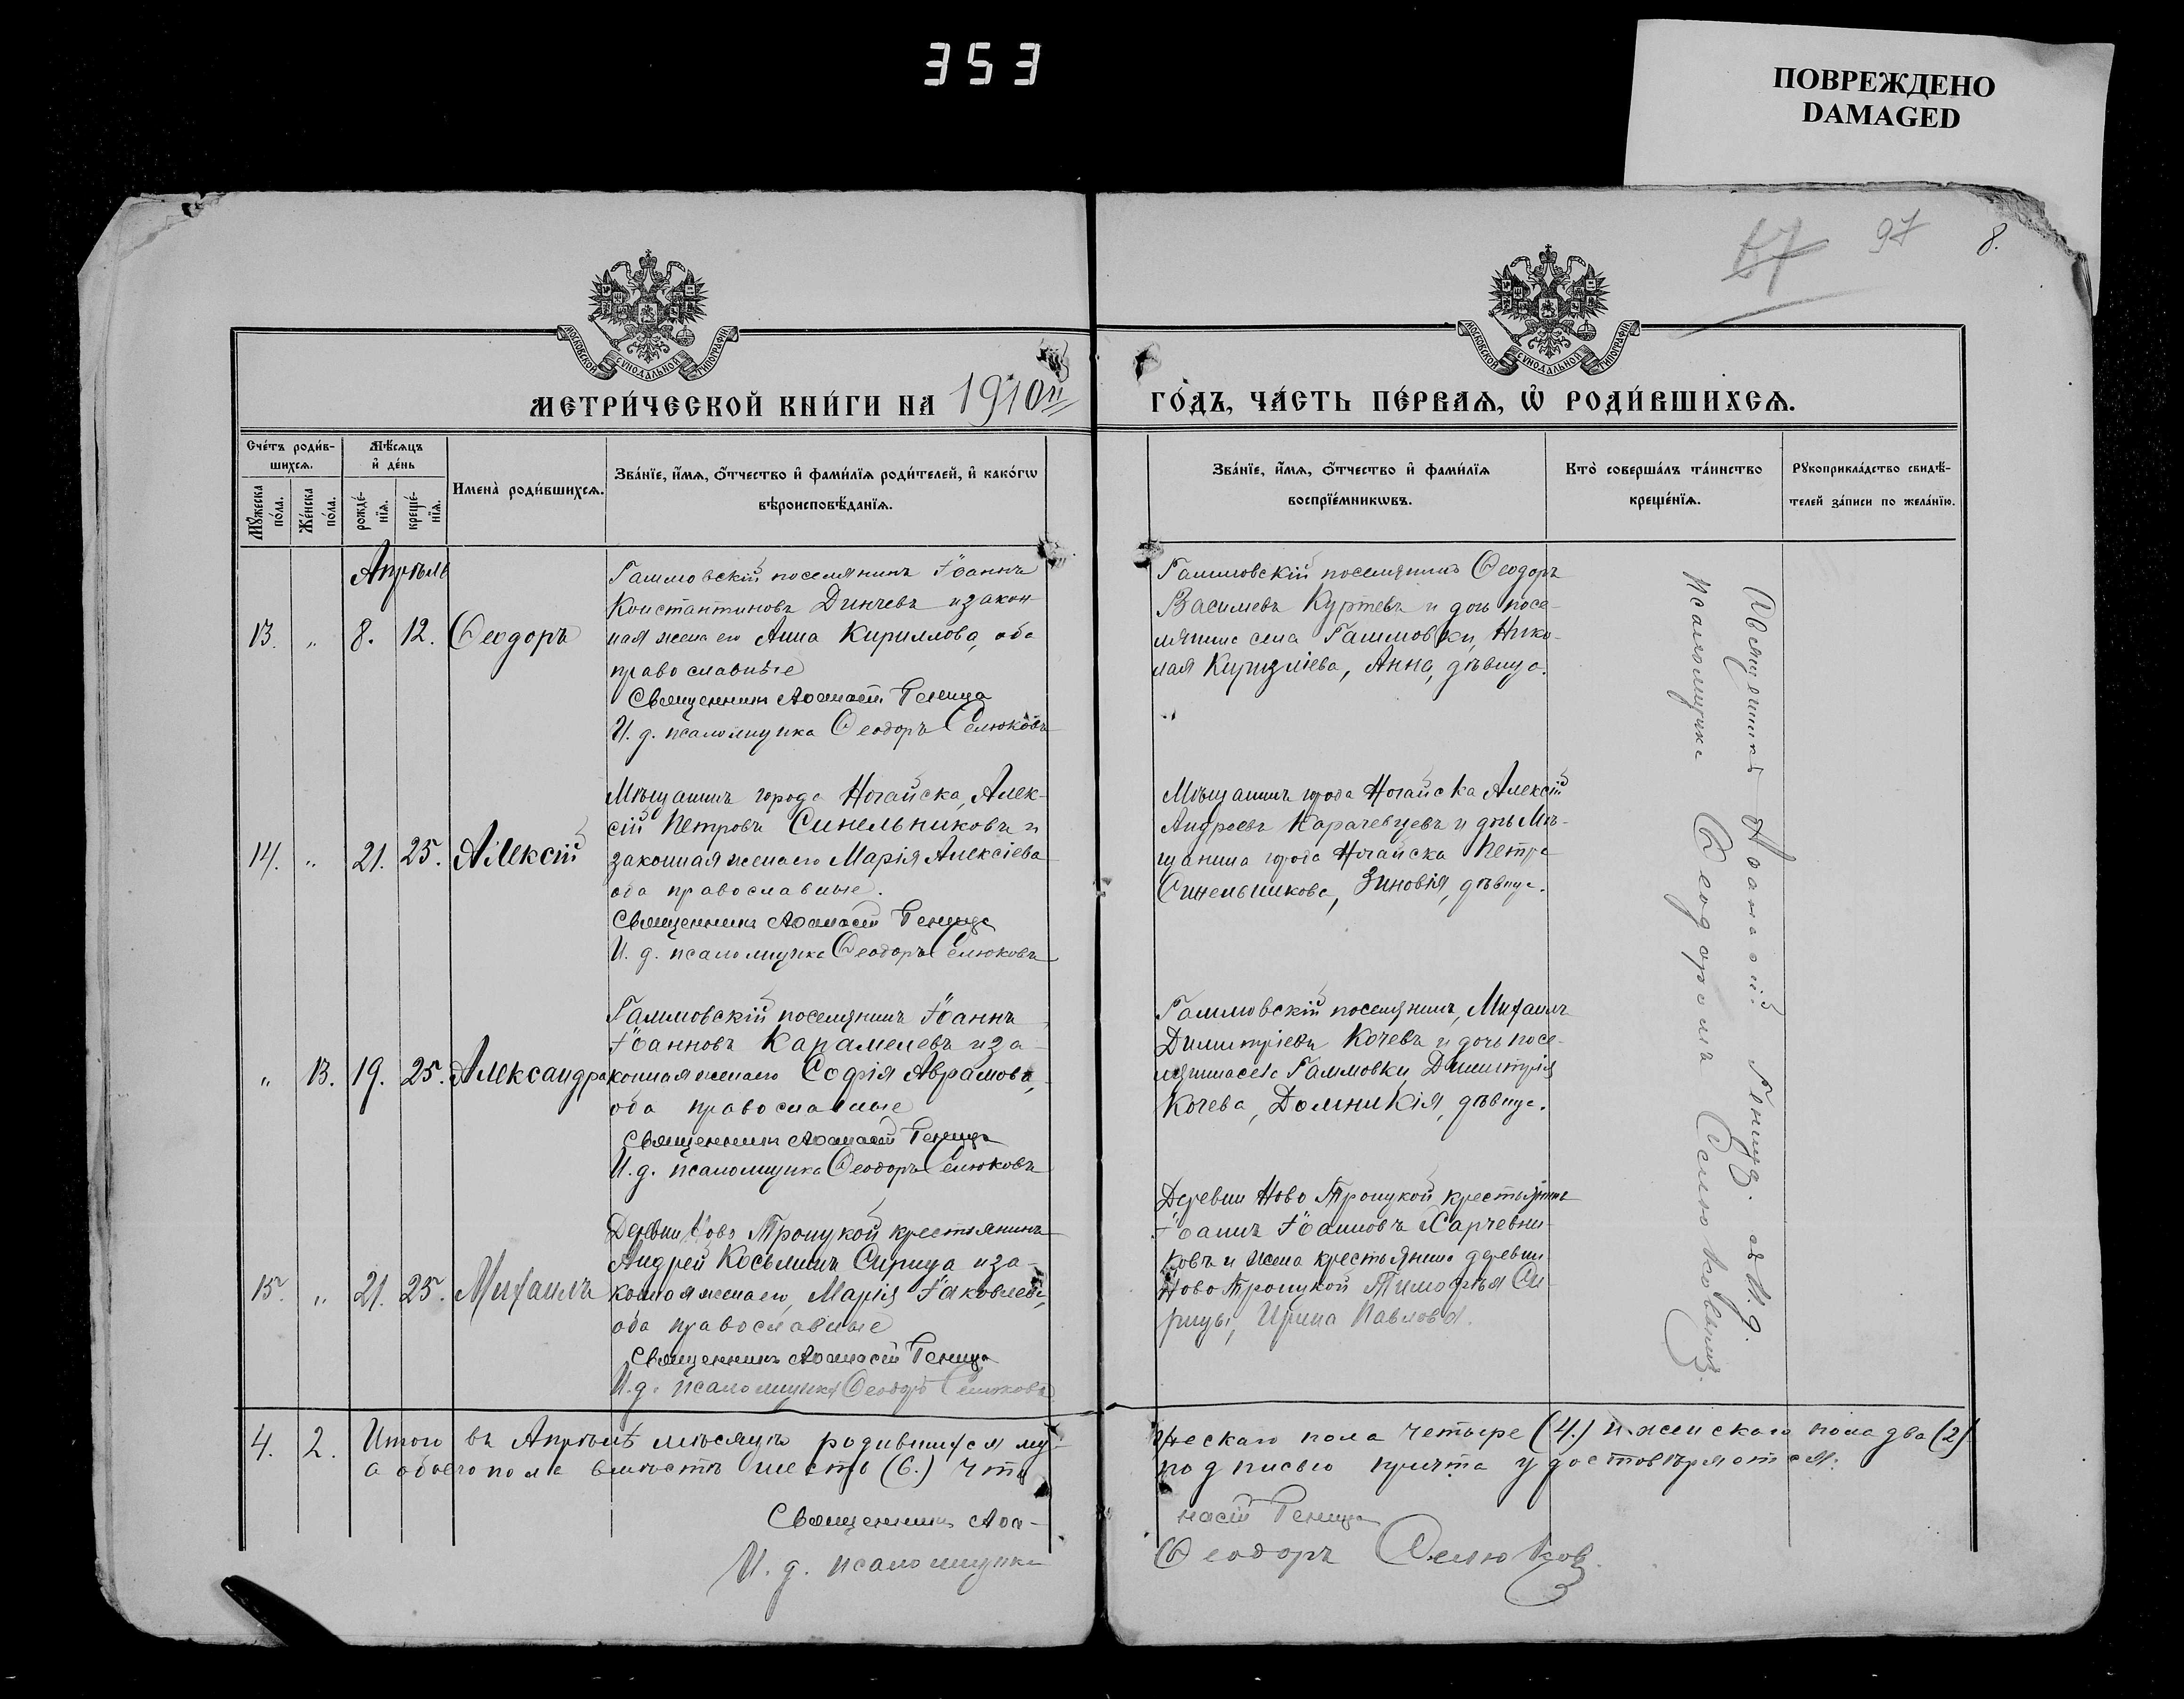 353
ПОВРЕЖДЕНО
DAMAGED
67
97
8.
МОСКОВСКОЙ СУНОДАЛЬНОЙ ТИПОГРАФІИ
МОСКОВСКОЙ СУНОДАЛЬНОЙ ТИПОГРАФІИ
МЕТРИ́ЧЕСКОЙ КНИ́ГИ НА 1910й
ГО́ДЪ, ЧА́СТЬ ПЕ́РВАѦ, Ѡ҆ РОДИ́ВШИХСѦ.
Сче́тъ роди́в-
шихсѧ.
Мѣ́сѧцъ
и҆ де́нь
Мꙋ́жеска
по́ла.
Же́нска
по́ла.
рожде́-
нїѧ.
креще́-
нїѧ.
Имена̀ роди́вшихсѧ.
Зва́нїе, и҆́мѧ, о҆́тчество и҆ фами́лїѧ роди́телей, и҆ како́гѡ
вѣроисповѣ́данїѧ.
Зва́нїе, и҆́мѧ, о҆́тчество и҆ фами́лїѧ
воспрїе́мникѡвъ.
Кто̀ соверша́лъ та́инство
креще́нїѧ.
Рꙋкоприкла́дство свидѣ́-
телей за́писи по жела́нїю.
Апрѣль
13. „ 8. 12. Ѳеодоръ
Гаммовскій поселянинъ Іоаннъ
Константиновъ Динчевъ и закон-
ная жена его Анна Кириллова, оба
православные
Священникъ Аѳанасій Геница
И. д. псаломщика Ѳеодоръ Селюковъ
Гаммовскій поселянинъ Ѳеодоръ
Василіевъ Куртевъ и дочь посе-
лянина села Гаммовки, Нико-
лая Киризліева, Анна, дѣвица.
14. „ 21. 25. Алексій
Мѣщанинъ города Ногайска, Алек-
сій Петровъ Синельниковъ и
законная жена его Марія Алексіева
оба православные.
Священникъ Аѳанасій Геница
И. д. псаломщика Ѳеодоръ Селюковъ
Мѣщанинъ города Ногайска Алексій
Андреевъ Карачевцевъ и дочь Мѣ-
щанина города Ногайска Петра
Синельникова, Зиновія, дѣвица.
„ 13. 19. 25. Александра
Гаммовскій поселянинъ Іоаннъ
Іоанновъ Карамелевъ и за-
конная жена его Софія Аврамова,
оба православные
Священникъ Аѳанасій Геница
И. д. псаломщика Ѳеодоръ Селюковъ
Гаммовскій поселянинъ, Михаилъ
Димитріевъ Кочевъ и дочь посе-
лянина села Гаммовки Димитрія
Кочева, Домникія, дѣвица.
15. „ 21. 25. Михаилъ
Деревни Ново Троицкой крестьянинъ
Андрей Косьминъ Сирица и за-
конная жена его, Марія Іаковлева,
оба православные
Священникъ Аѳанасій Геница
И. д. псаломщика Ѳеодоръ Селюковъ
Деревни Ново Троицкой крестьянинъ
Іоаннъ Іоанновъ Харчевни-
ковъ и жена крестьянина деревни
Ново Троицкой Тимоѳея Си-
рицы, Ирина Павлова.
Священникъ Аѳанасій Геница. съ И. д.
псаломщика Ѳеодоромъ Селюковымъ.
4. 2. Итого въ Апрѣлѣ мѣсяцѣ родившихся му-
жескаго пола четыре (4.) и женскаго пола два (2)
а обоего пола вмѣстѣ шесть (6.) что
подписью причта удостовѣряется.
Священникъ Аѳа-
насій Геница
И. д. псаломщика
Ѳеодоръ Селюковъ.